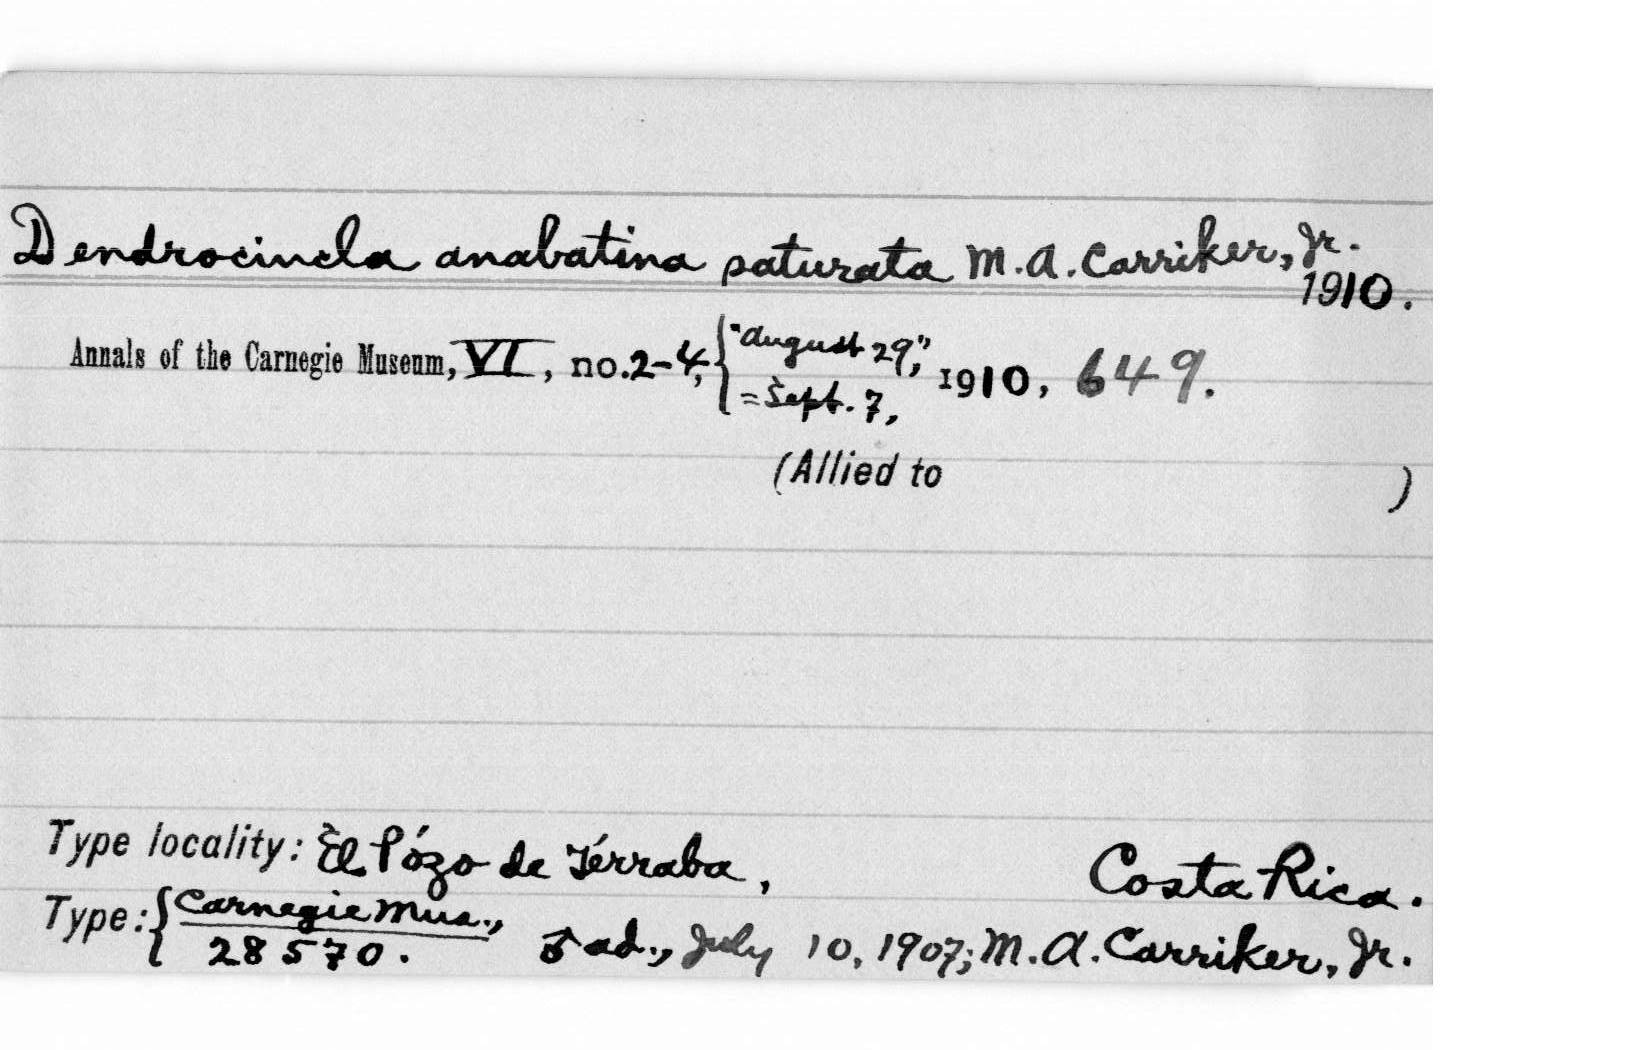 Dendrocincla anabatina saturata M.A. Carriker, Jr.
1910.
Annals of the Carnegie Museum, VI, no. 2-4, { "August 29," = Sept. 7, 1910, 649.
(Allied to )
Type locality: El Pózo de Térraba, Costa Rica.
Type: { Carnegie Mus., 28570. ♂ ad., July 10, 1907; M.A. Carriker, Jr.